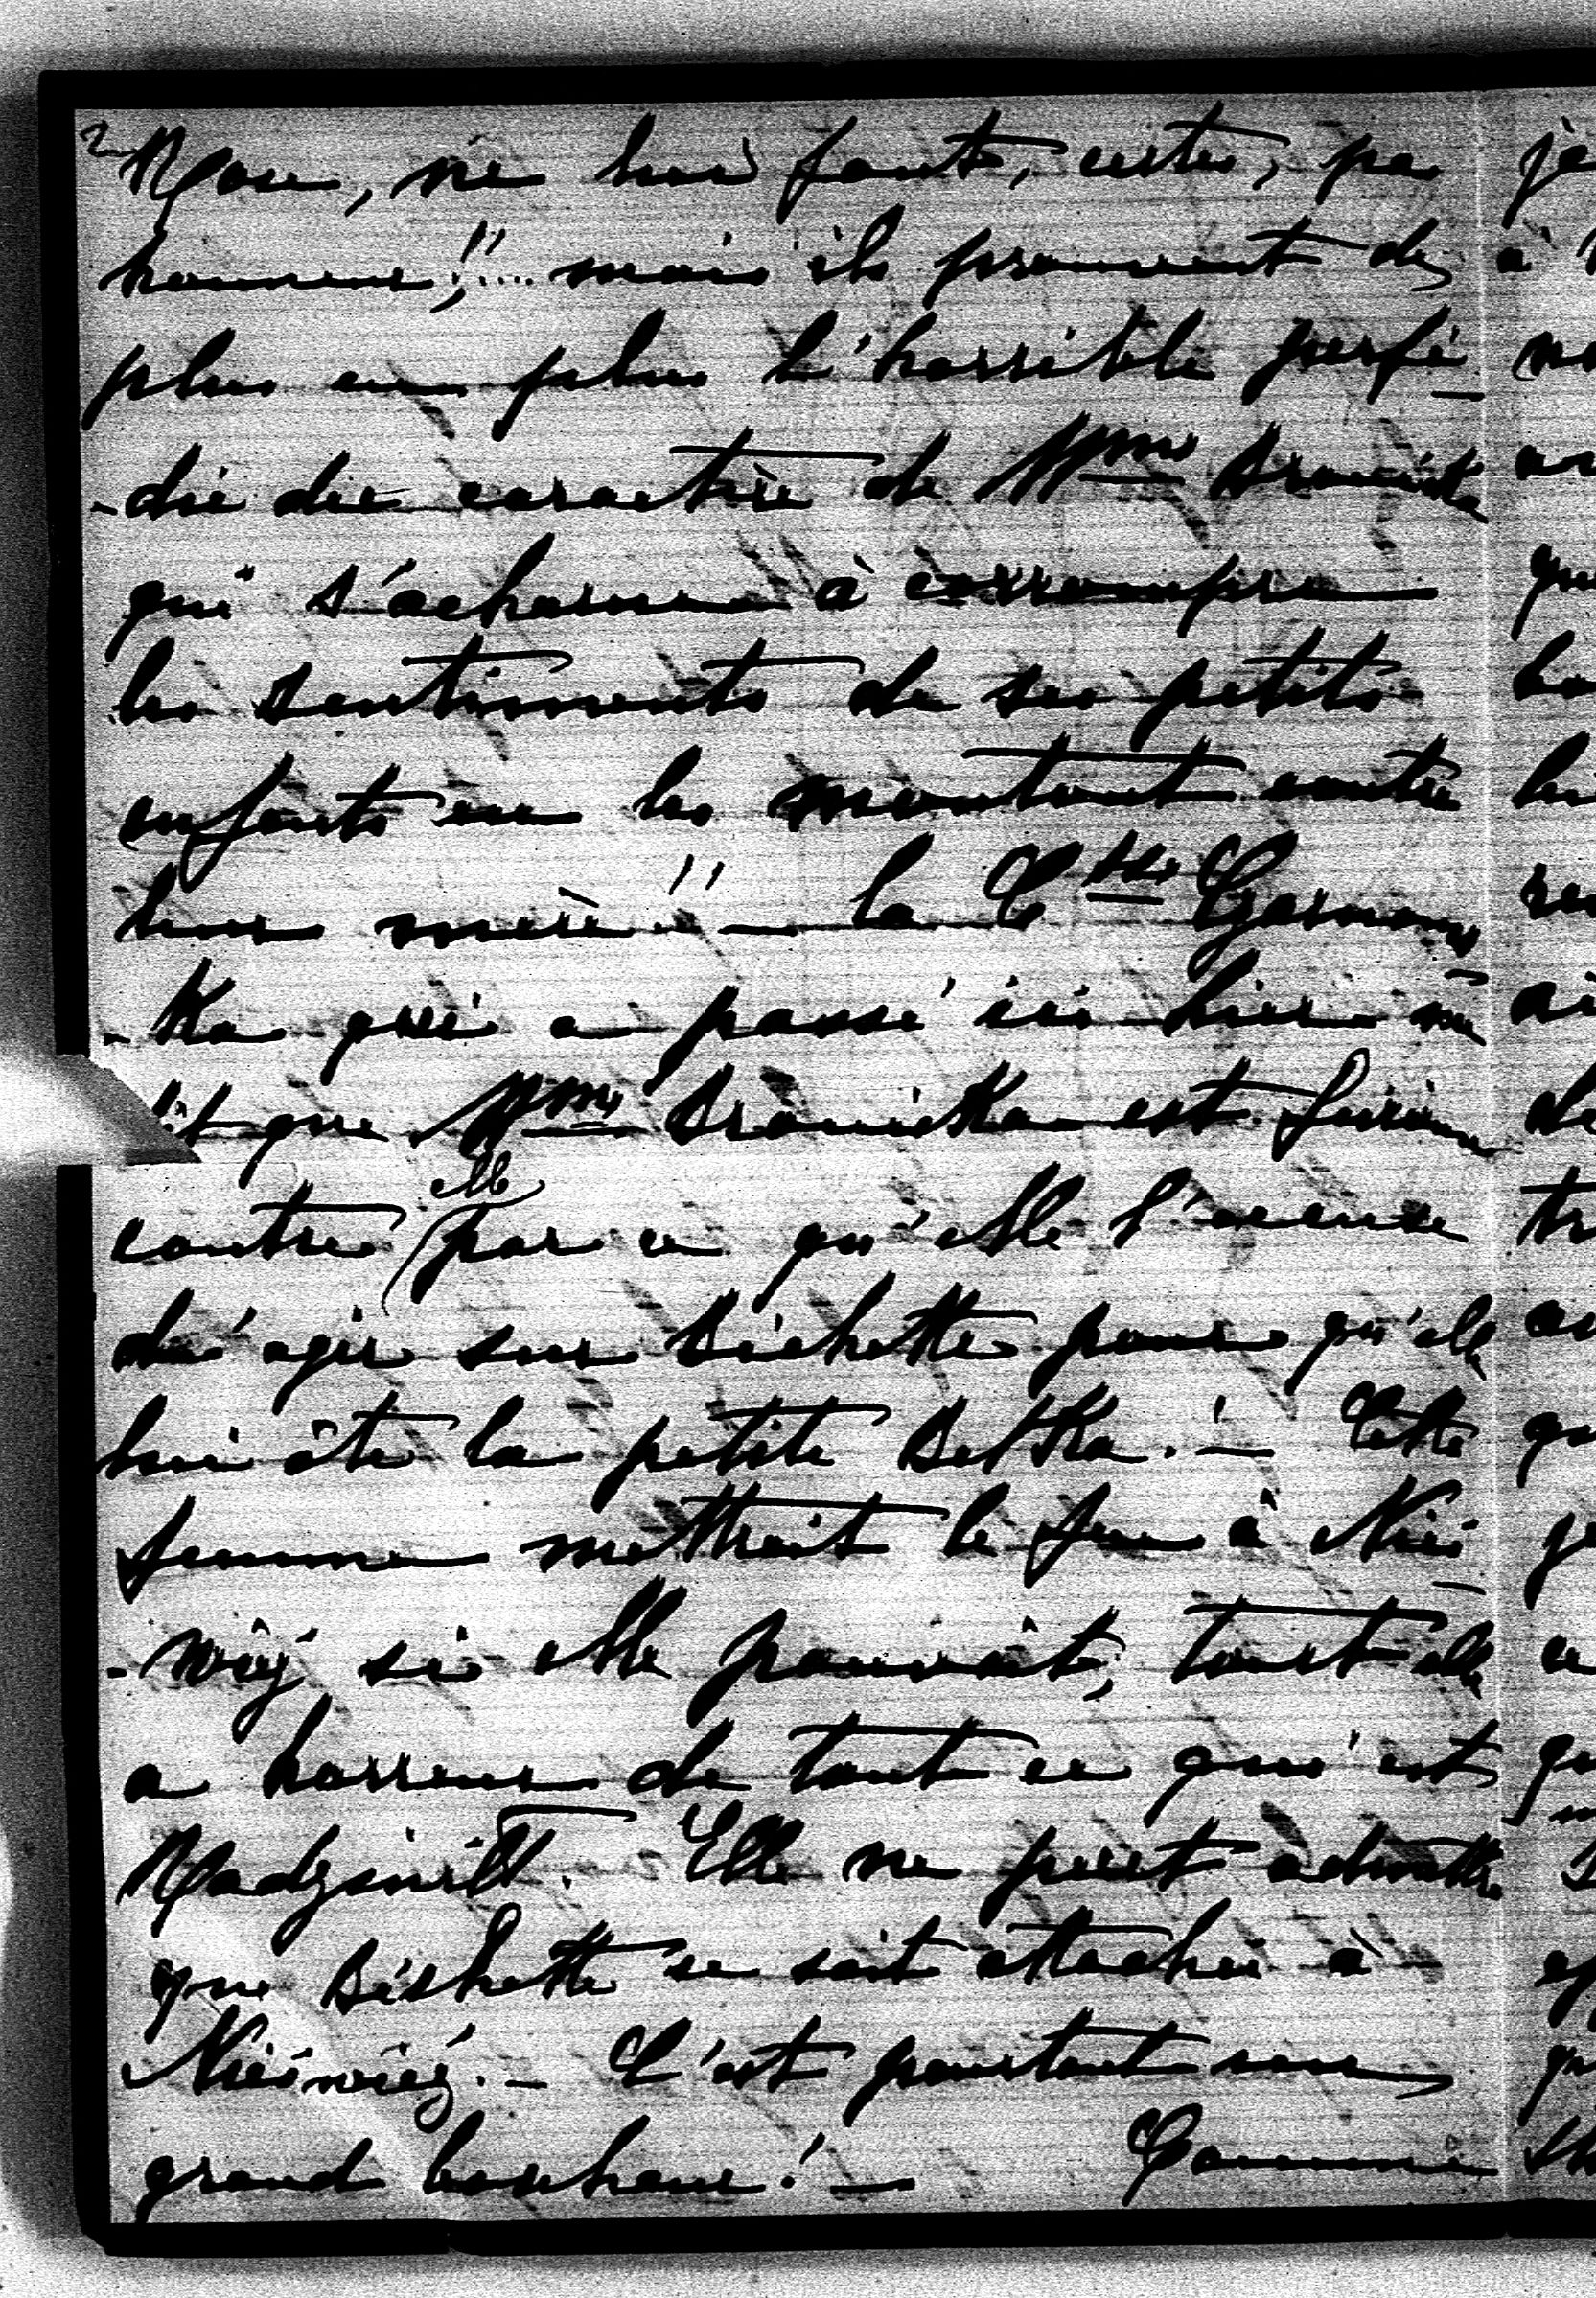 2
Rose, ne lui font, certes, pas
honneur!!... mais ils prouvent de
plus en plus l'horrible perfi-
-die du caractère de Mme Branicka
qui s'acharne à corrompre
les sentiments de ses petits
enfants en les montant contre
leur mère!! - La Ctsse Czarnec-
-ka qui a passé ici hier me
dit que Mme Branicka est furieuse
contre elle par ce qu'elle l'accuse
d'agir sur Bichette pour qu'elle
lui ôte la petite Betka. - Cette
femme mettrait le feu à Nies-
-wiéj si elle pouvait, tant elle
a horreur de tout ce qui est
Radziwill. Elle ne peut admettre
que Bichette se soit attachée à
Niéswiéj. - C'est pourtant un
grand bonheur! - Comme